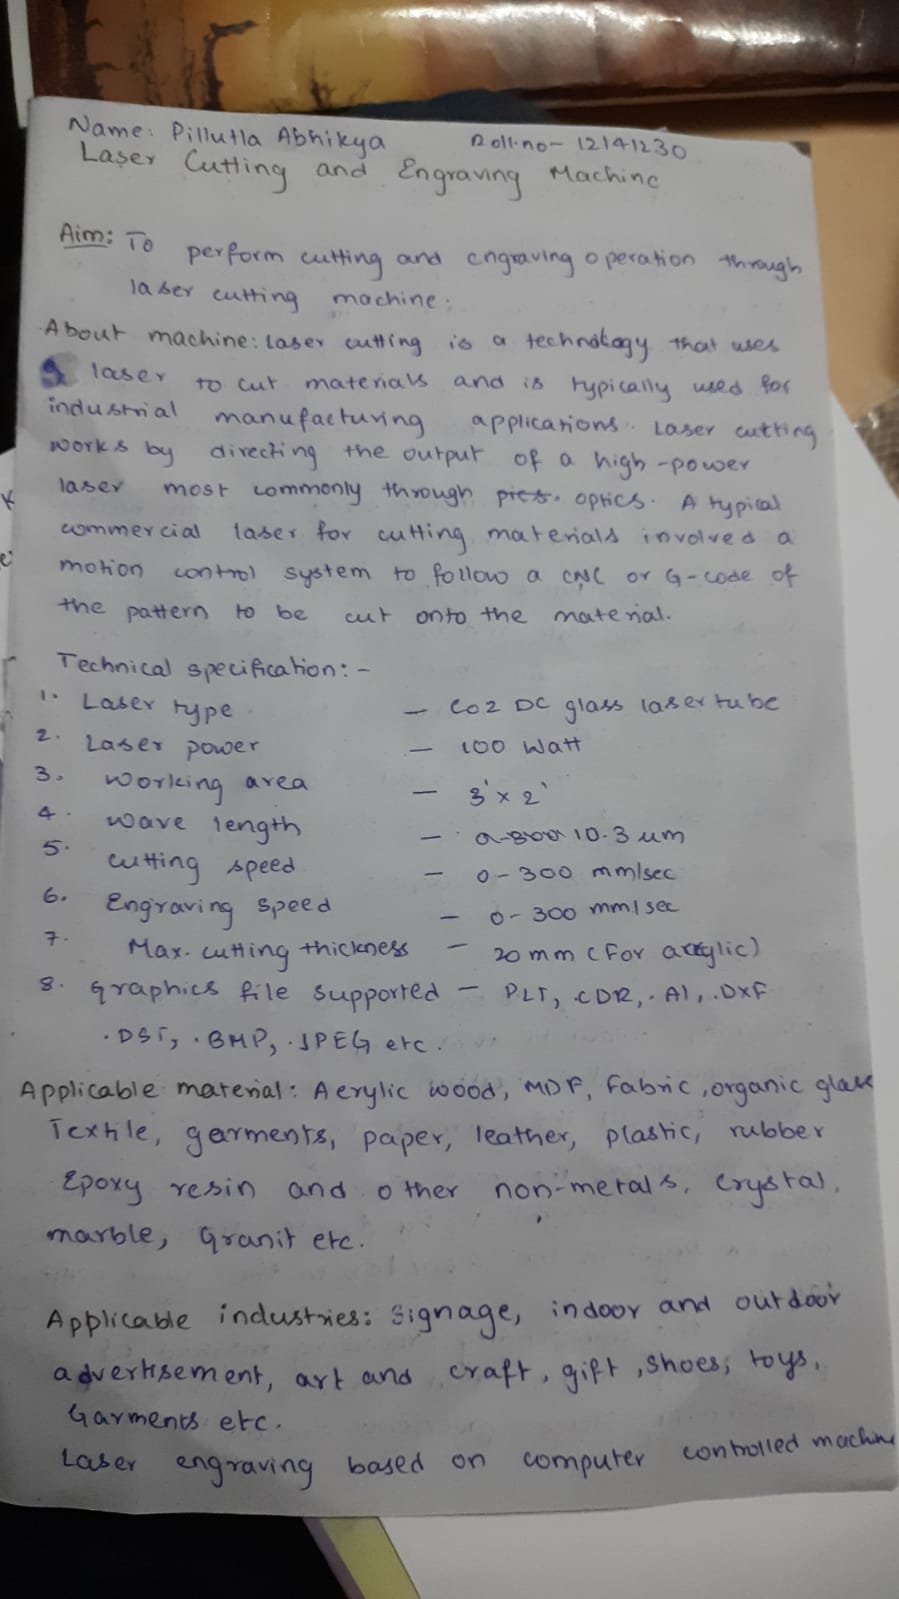 Name: Pillutla Abhikya Roll.no- 12141230
Laser Cutting and Engraving Machine
Aim: To perform cutting and engraving operation through
laser cutting machine.
About machine: Laser cutting is a technology that uses
laser to cut materials and is typically used for
industrial manufacturing applications. Laser cutting
works by directing the output of a high-power
laser most commonly through optics. A typical
commercial laser for cutting materials involved a
motion control system to follow a CNC or G-code of
the pattern to be cut onto the material.
Technical specification:-
1. Laser type - CO2 DC glass laser tube
2. Laser power - 100 Watt
3. Working area - 3'x 2'
4. Wave length - 10.3 um
5. Cutting speed - 0-300 mm/sec
6. Engraving speed - 0-300 mm/sec
7. Max. cutting thickness - 20 mm (For acrylic)
8. Graphics file supported - PLT, .CDR, .AI, .DXF
.DST, .BMP, .JPEG etc.
Applicable material: Acrylic wood, MDF, Fabric, organic glass
Textile, garments, paper, leather, plastic, rubber
Epoxy resin and other non-metals, crystal,
marble, Granit etc.
Applicable industries: Signage, indoor and outdoor
advertisement, art and craft, gift, shoes, toys,
Garments etc.
Laser engraving based on computer controlled machine